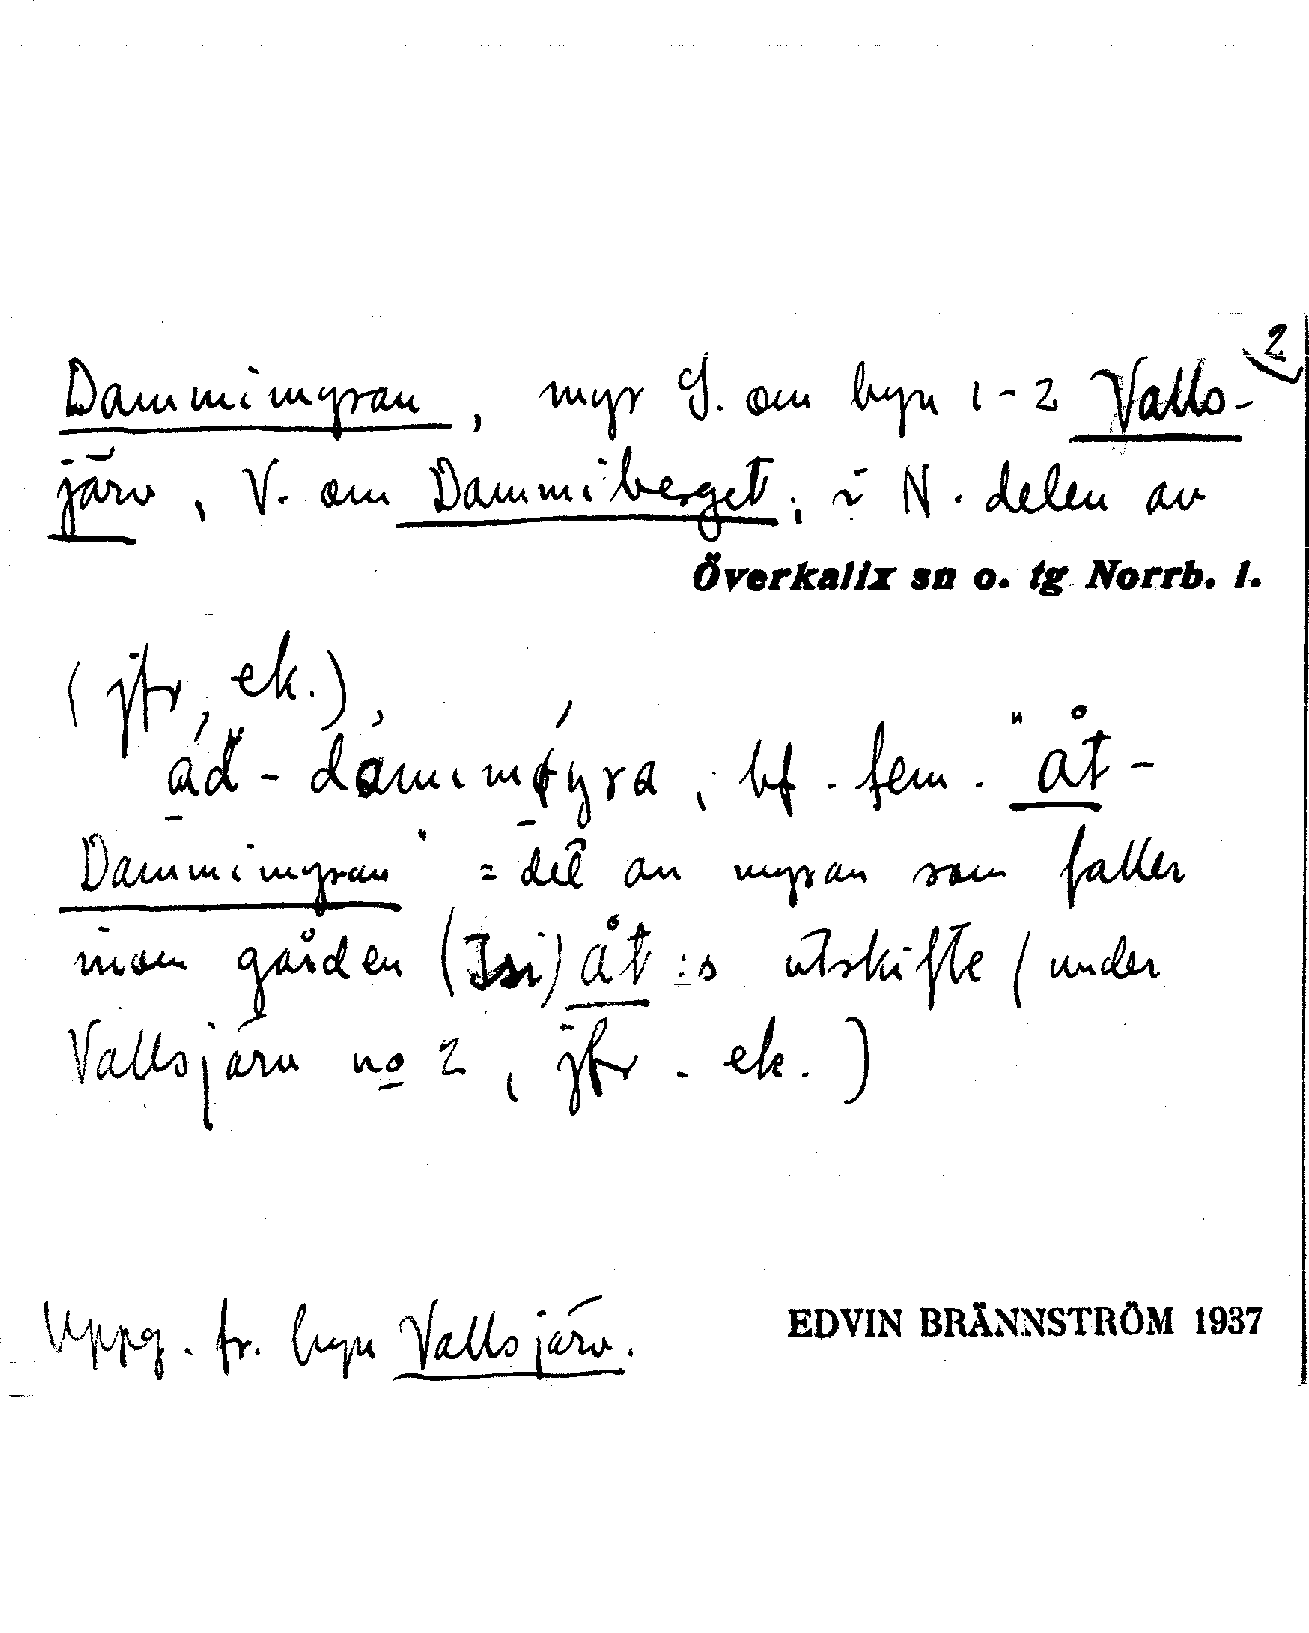 2
Dammimyran, myr S. om byn 1-2 Valls-
järv, V. om Dammiberget; i N. delen av
Överkalix sn o. tg Norrb. l.
(jfr ek.),
åd-dammimøyra, bf. fem. "åt-
Dammimyran" = del av myran som faller
inom gården (Isi) åt:s utskifte (under
Vallsjärv no 2, jfr. ek.)
Uppg. fr. byn Vallsjärv.
EDVIN BRÄNNSTRÖM 1937